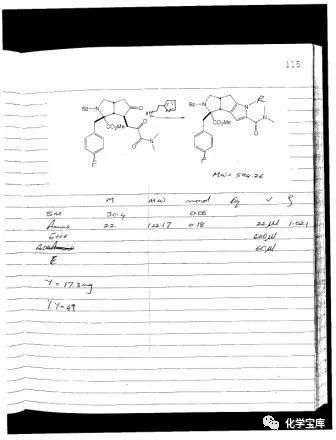 115
Bz-N
CO2Me
O
O
O
N
F
Bz-N
CO2Me
N
R
O
N
F
MW= 594.26
M MW mmol Eq V ρ
SM 30.4 0.06
Amine 22 122.17 0.18 22 µl 1.021
EtOH 600µl
60µl
Y = 17.3mg
% Y = 49
化学宝库